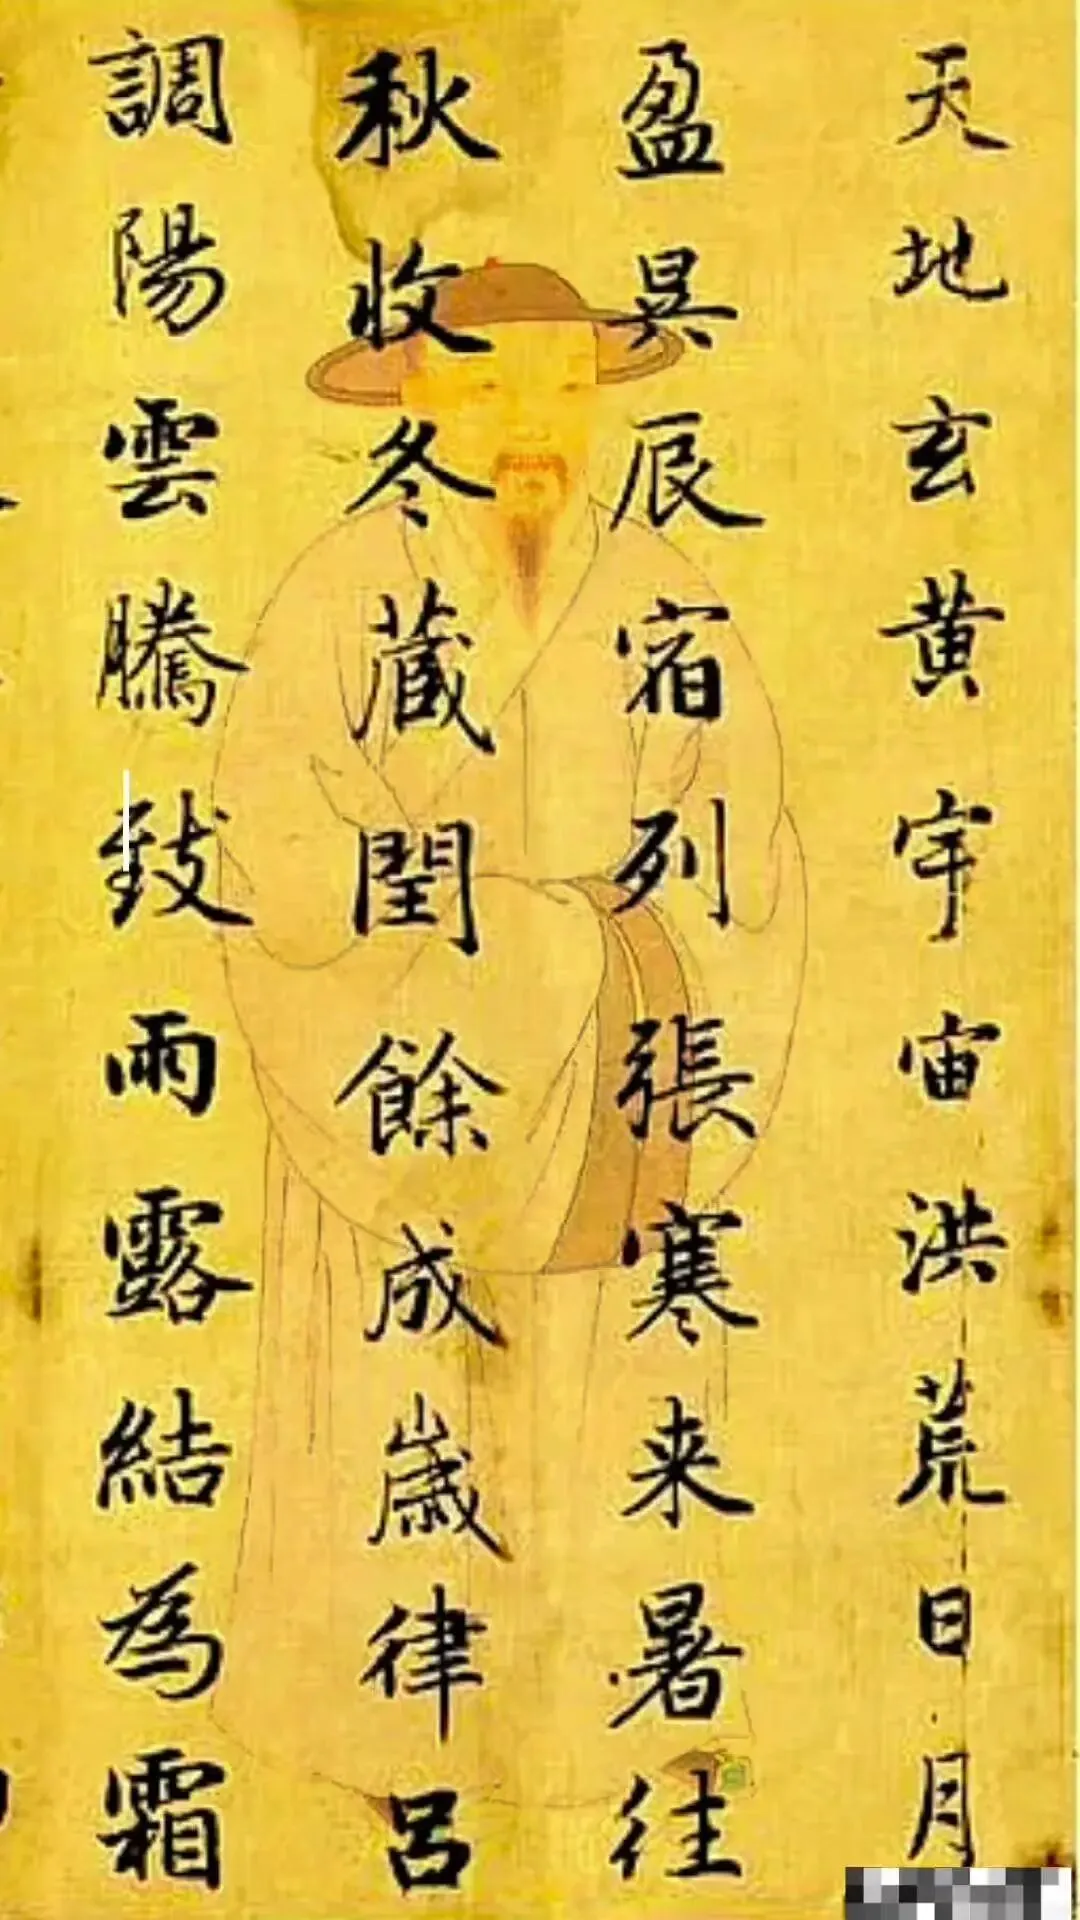 天地玄黄宇宙洪荒日月
盈昃辰宿列張寒来暑往
秋收冬藏閏餘成歲律呂
調陽雲騰致雨露結為霜